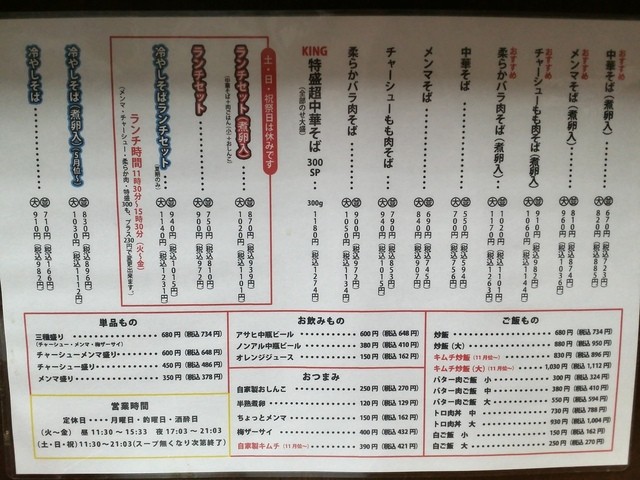 おすすめ 中華そば(煮卵入)・・・ 並 670円(税込723円) 大 820円(税込885円)
おすすめ メンマそば(煮卵入)・・・ 並 810円(税込874円) 大 960円(税込1036円)
おすすめ チャーシューもも肉そば(煮卵入) 並 910円(税込982円) 大 1060円(税込1144円)
おすすめ 柔らかバラ肉そば(煮卵入)・・ 並 1020円(税込1101円) 大 1170円(税込1263円)
中華そば・・・・・・・・ 並 550円(税込594円) 大 700円(税込756円)
メンマそば・・・・・・・ 並 690円(税込745円) 大 840円(税込907円)
チャーシューもも肉そば・・・ 並 790円(税込853円) 大 940円(税込1015円)
柔らかバラ肉そば・・・・・ 並 900円(税込972円) 大 1050円(税込1134円)
KING 特盛超中華そば 300SP・・ 300g 1180円(税込1274円)
(全部のせ大盛)
土・日・祝祭日は休みです
ランチセット(煮卵入)・・・ 並 870円(税込939円) 大 1020円(税込1101円)
(中華そば+肉ごはん(小)+おしんこ)
ランチセット・・・・・・・ 並 750円(税込810円) 大 900円(税込972円)
冷やしそばランチセット・・ 並 940円(税込1015円) 大 1140円(税込1231円)
(夏期のみ)
ランチ時間 11時30分~15時30分(火~金)
(メンマ・チャーシュー・柔らか肉・特盛300も、プラス230円で変更出来ます。)
冷やしそば(煮卵入)(5月位~) 並 830円(税込896円) 大 1030円(税込1112円)
冷やしそば・・・・・・・ 並 710円(税込766円) 大 910円(税込982円)
単品もの
三種盛り 680円(税込734円)
(チャーシュー・メンマ・梅ザーサイ)
チャーシューメンマ盛り 600円(税込648円)
チャーシュー盛り 450円(税込486円)
メンマ盛り 350円(税込378円)
営業時間
定休日・・・・・月曜日・釣曜日・酒酔日
(火~金) 昼 11:30 ~ 15:33 夜 17:03 ~ 21:03
(土・日・祝)11:30~21:03(スープ無くなり次第終了)
お飲みもの
アサヒ中瓶ビール 600円(税込648円)
ノンアル中瓶ビール 380円(税込410円)
オレンジジュース 150円(税込162円)
おつまみ
自家製おしんこ 250円(税込270円)
半熟煮卵 120円(税込129円)
ちょっとメンマ 150円(税込162円)
梅ザーサイ 400円(税込432円)
自家製キムチ(11月位~) 390円(税込421円)
ご飯もの
炒飯 680円(税込734円)
炒飯(大) 880円(税込950円)
キムチ炒飯(11月位~) 830円(税込896円)
キムチ炒飯(大)(11月位~) 1,030円(税込1,112円)
バター肉ご飯 小 300円(税込324円)
バター肉ご飯 中 380円(税込410円)
バター肉ご飯 大 550円(税込594円)
トロ肉丼 中 730円(税込788円)
トロ肉丼 大 930円(税込1,004円)
白ご飯 小 150円(税込162円)
白ご飯 大 250円(税込270円)